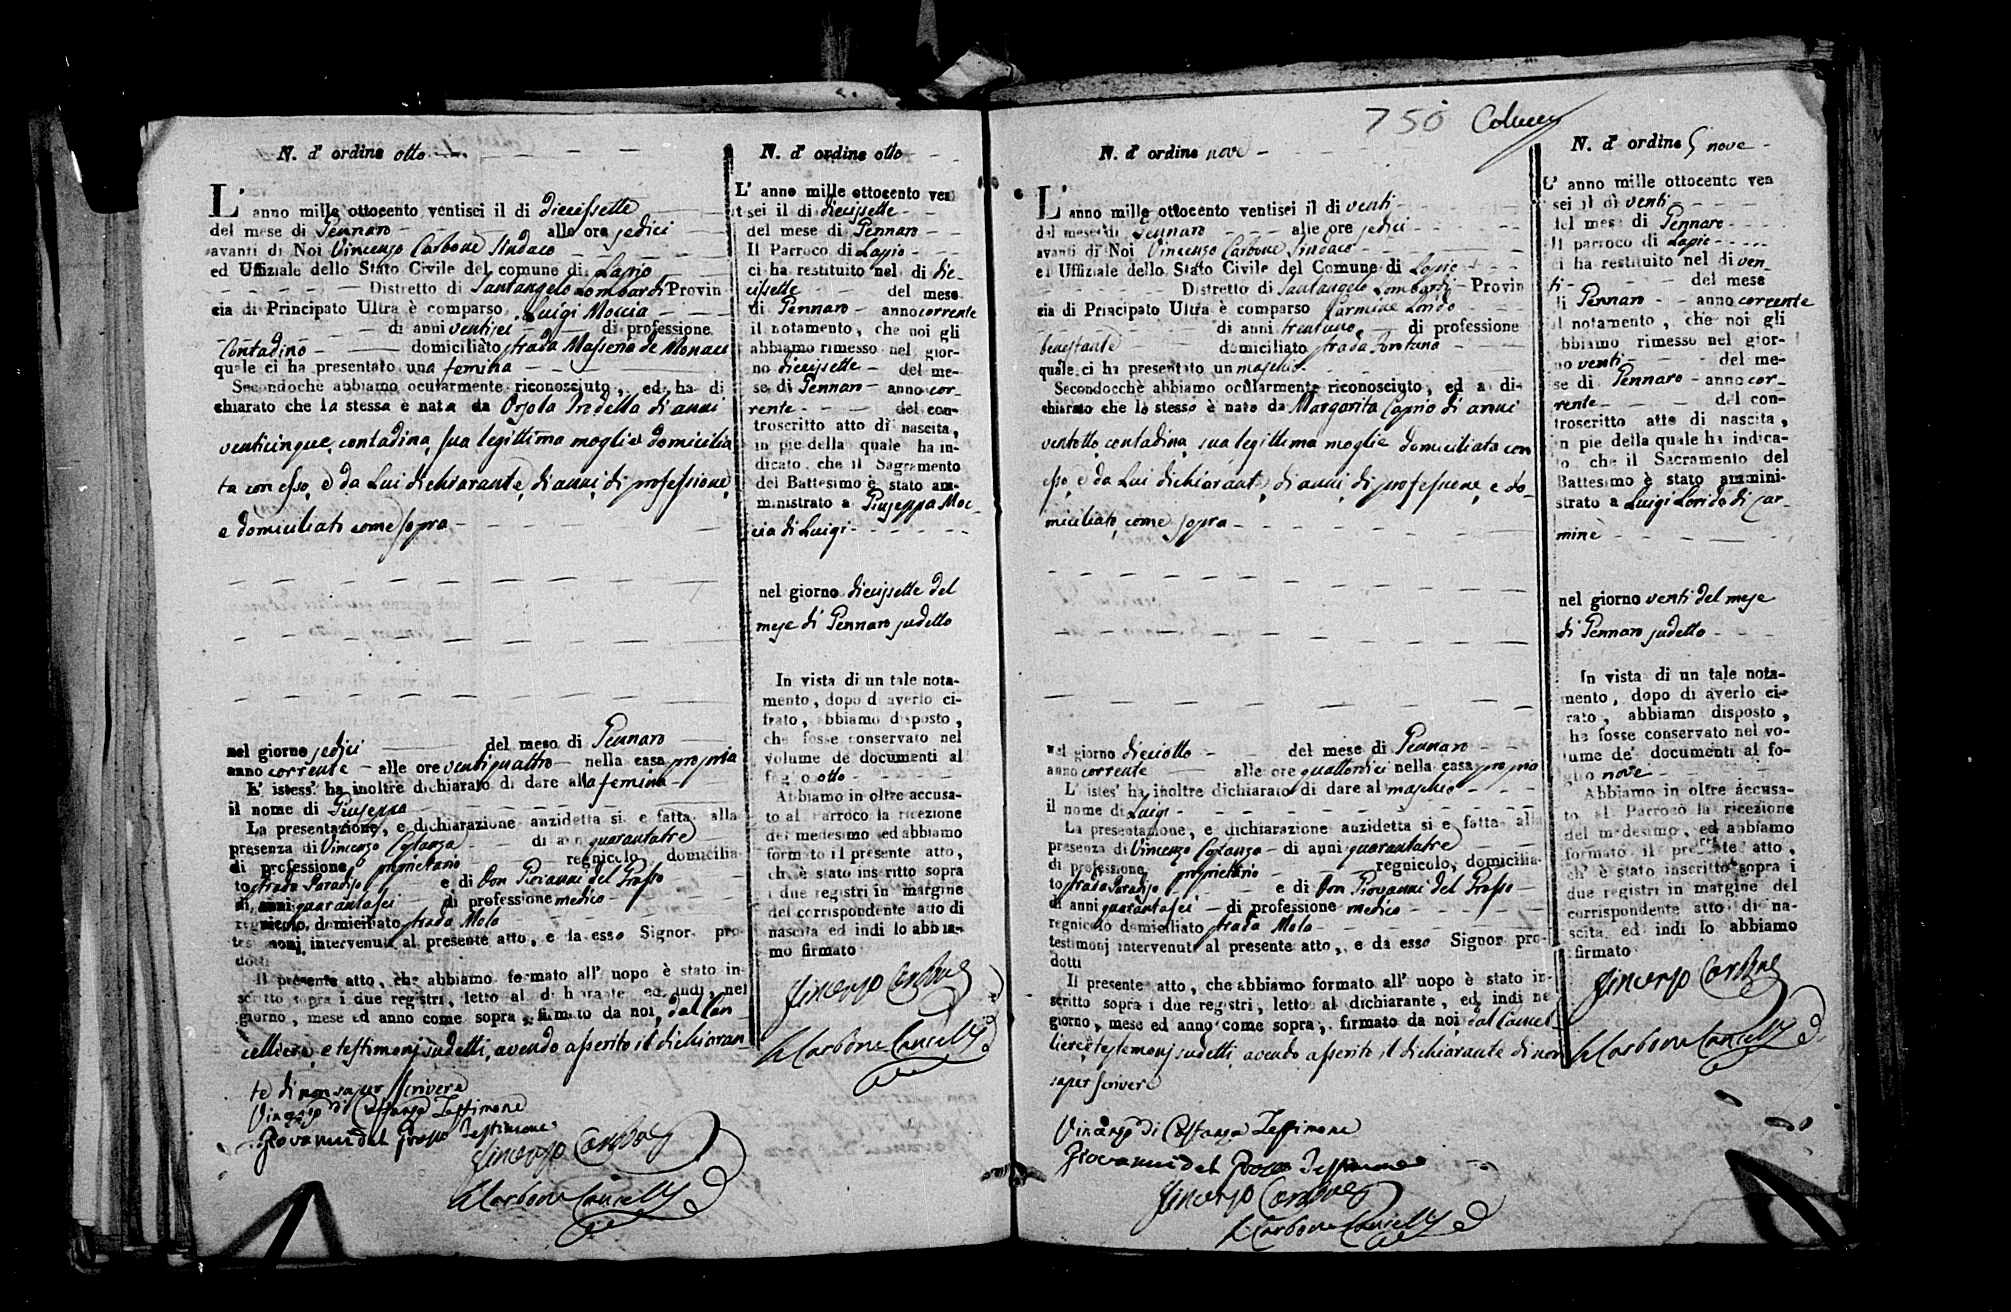 N. d' ordine otto
L' anno mille ottocento ventisei il di diecissette
del mese di Gennaro alle ore sedici
avanti di Noi Vincenzo Carbone Sindaco
ed Uffiziale dello Stato Civile del comune di Lapio
Distretto di Santangelo Lombardi Provin
cia di Principato Ultra è comparso Luigi Moccia
di anni ventisei di professione
Contadino domiciliato strada Masseria de Monaci
quale ci ha presentato una femina
Secondochè abbiamo ocularmente riconosciuto, ed ha di
chiarato che la stessa è nata da Orsola Prodella di anni
venticinque, contadina, sua legittima moglie domicilia
ta con esso, e da Lui dichiarante, di anni, di professione,
e domiciliato come sopra
nel giorno sedici del mese di Gennaro
anno corrente alle ore ventiquattro nella casa propria
L' istess' ha inoltre dichiarato di dare alla femina
il nome di Giuseppa
La presentazione, e dichiarazione anzidetta si è fatta alla
presenza di Vincenzo Costanza di anni quarantatre
di professione proprietario regnicolo, domicilia
to strada Paradiso e di Don Giovanni del Grosso
di anni quarantasei di professione medico
regnicolo, domiciliato strada Molo
testimonj intervenuti al presente atto, e da esso Signor pro-
dotti
Il presente atto, che abbiamo formato all' uopo è stato in-
scritto sopra i due registri, letto al dichiarante, ed indi nel
giorno, mese ed anno come sopra, firmato da noi, dal Can
celliere, e testimonj sudetti, avendo asserito il dichiaran
te di non saper scrivere
Vincenzo di Costanza Testimone
Giovanni del Grosso Testimone
Vincenzo Carbone
Carbone Cancell
N. d' ordine otto
L' anno mille ottocento ven
tsei il di diecissette
del mese di Gennaro
Il Parroco di Lapio
ci ha restituito nel di die-
cissette del mese
di Gennaro anno corrente
il notamento, che noi gli
abbiamo rimesso nel gior-
no diecissette del me-
se di Gennaro anno cor-
rente del con-
troscritto atto di nascita,
in pie della quale ha in-
dicato, che il Sagramento
del Battesimo è stato am-
ministrato a Giuseppa Moc-
cia di Luigi
nel giorno diecissette del
mese di Gennaro sudetto
In vista di un tale nota-
mento, dopo d averlo ci-
frato, abbiamo disposto,
che fosse conservato nel
volume de documenti al
foglio otto
Abbiamo in oltre accusa-
to al Parroco la ricezione
del medesimo, ed abbiamo
formato il presente atto,
ch' è stato inscritto sopra
i due registri in margine
del corrispondente atto di
nascita ed indi lo abbia-
mo firmato
Vincenzo Carbone
Carbone Cancell
750 Colucci
N. d' ordine nove
L' anno mille ottocento ventisei il di venti
del mese di Gennaro alle ore sedici
avanti di Noi Vincenzo Carbone Sindaco
ed Uffiziale dello Stato Civile del Comune di Lapio
Distretto di Santangelo Lombardi Provin
cia di Principato Ultra è comparso Carmine Lorido
di anni trentuno di professione
benestante domiciliato strada Fontana
quale ci ha presentato un maschio
Secondocchè abbiamo ocularmente riconosciuto, ed a di-
chiarato che lo stesso è nato da Margarita Caprio di anni
ventotto, contadina, sua legittima moglie domiciliata con
esso, e da Lui dichiarante, di anni, di professione, e do-
miciliato, come sopra
nel giorno dieciotto del mese di Gennaro
anno corrente alle ore quattordici nella casa propria
L' istes' ha inoltre dichiarato di dare al maschio
il nome di Luigi
La presentazione, e dichiarazione anzidetta si è fatta alla
presenza di Vincenzo Costanza di anni quarantatre
di professione proprietario regnicolo, domicilia-
to strada Paradiso e di Don Giovanni del Grosso
di anni quarantasei di professione medico
regnicolo domiciliato strada Molo
testimonj intervenuti al presente atto, e da esso Signor pro-
dotti
Il presente atto, che abbiamo formato all' uopo è stato in-
scritto sopra i due registri, letto al dichiarante, ed indi ne
giorno, mese ed anno come sopra, firmato da noi dal Cancel-
liere, e testemonj sudetti, avendo asserito il dichiarante di non
saper scrivere
Vincenzo di Costanza Testimone
Giovanni del Grosso Testimone
Vincenzo Carbone
Carbone Cancell
N. d' ordine nove
L' anno mille ottocento ven
sei il di venti
del mese di Gennaro
Il parroco di Lapio
ci ha restituito nel di ven-
ti del mese
di Gennaro anno corrente
il notamento, che noi gli
abbiamo rimesso nel gior-
no venti del me-
se di Gennaro anno cor-
rente del con-
troscritto atto di nascita,
in pie della quale ha indica-
to, che il Sacramento del
Battesimo è stato ammini-
strato a Luigi Lorido di Car-
mine
nel giorno venti del mese
di Gennaro sudetto
In vista di un tale nota-
mento, dopo di averlo ci-
rato, abbiamo disposto,
ha fosse conservato nel vo-
lume de' documenti al fo-
glio nove
Abbiamo in oltre accusa-
to al Parroco la ricezione
del medesimo, ed abbiamo
formato il presente atto,
ch' è stato inscritto sopra i
due registri in margine del
corrispondente atto di na-
scita ed indi lo abbiamo
firmato
Vincenzo Carbone
Carbone Cancell